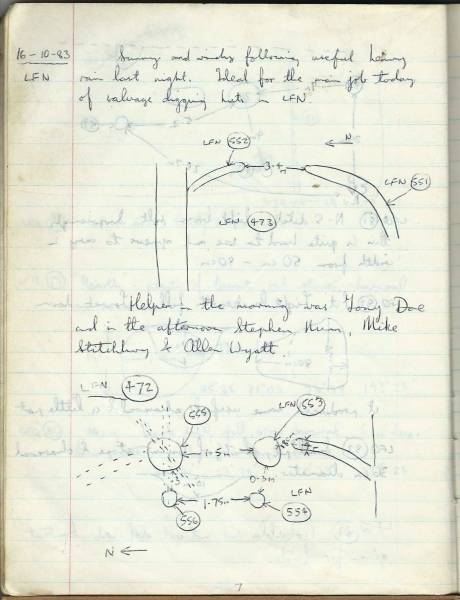 16-10-83
LFN
Sunny and windy following useful heavy
rain last night. Ideal for the main job today
of salvage digging huts in LFN.
N
LFN 552
3.4m
LFN 551
LFN 473
Helper in the morning was Tony Doe
and in the afternoon Stephen, Mike
Stitchbury & Allan Wyatt
LFN 472
555
LFN 553
1.5m
0.3m
LFN
1.75m
556
554
N
7